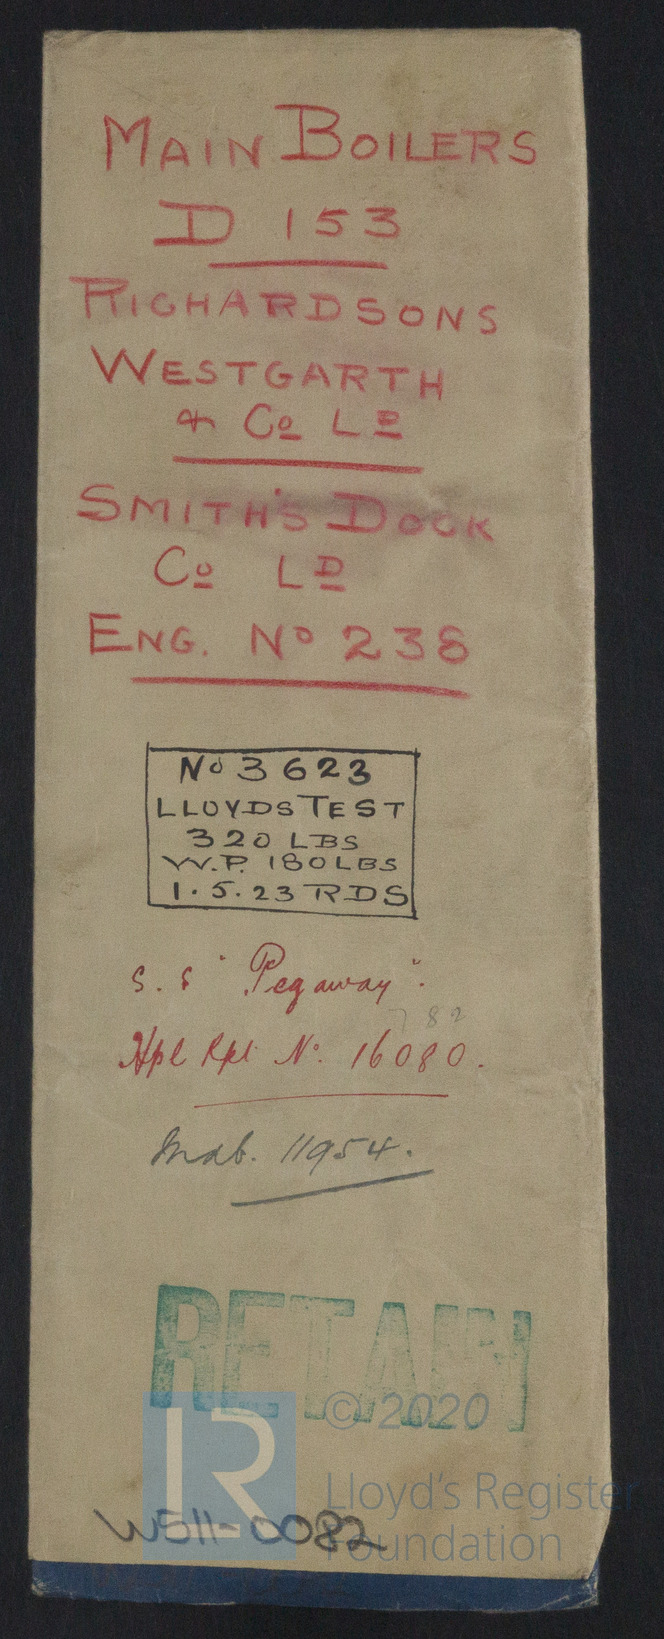 MAIN BOILERS
D 153
RICHARDSONS
WESTGARTH
& Co LD
SMITH'S DOCK
Co LD
ENG. No 238
No 3623
LLOYDS TEST
320 LBS
W.P. 180 LBS
1.5.23 RDS
S.S "Pegaway".
782
Hpl Rpt No. 16080.
Mdb. 11954.
RETAIN
© 2020
LR
Lloyd's Register
Foundation
W511-0082